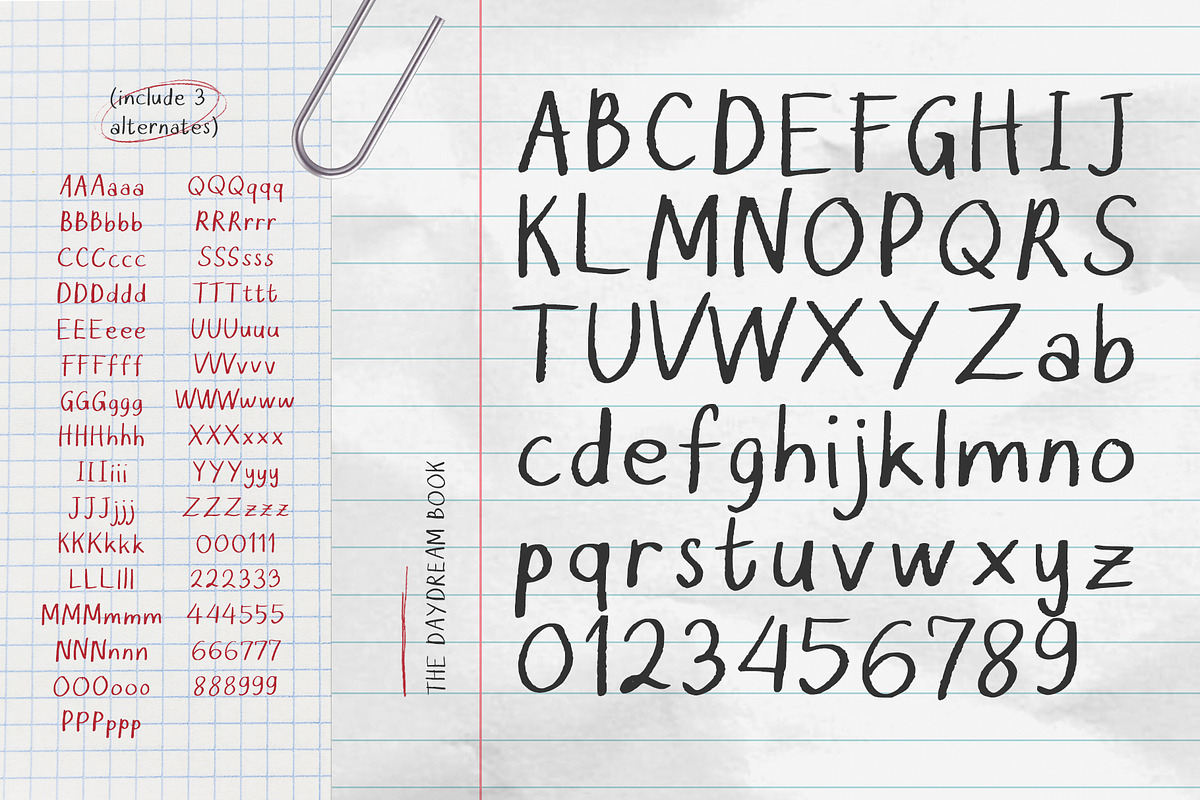 (include 3
alternates)
AAAaaa
BBBbbb
CCCccc
DDDddd
EEEeee
FFFfff
GGGggg
HHHhhh
IIIiii
JJJjjj
KKKkkk
LLLlll
MMMmmm
NNNnnn
OOOooo
PPPppp
QQQqqq
RRRrrr
SSSsss
TTTttt
UUUuuu
VVVvvv
WWWwww
XXXxxx
YYYyyy
ZZZzzz
000111
222333
444555
666777
888999
THE DAYDREAM BOOK
ABCDEFGHIJ
KLMNOPQRS
TUVWXYZab
cdefghijklmno
pqrstuvwxyz
0123456789